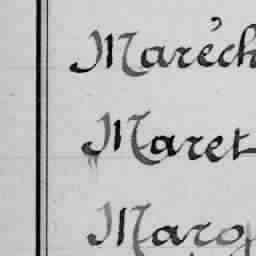 Maréch
Maret
Marg